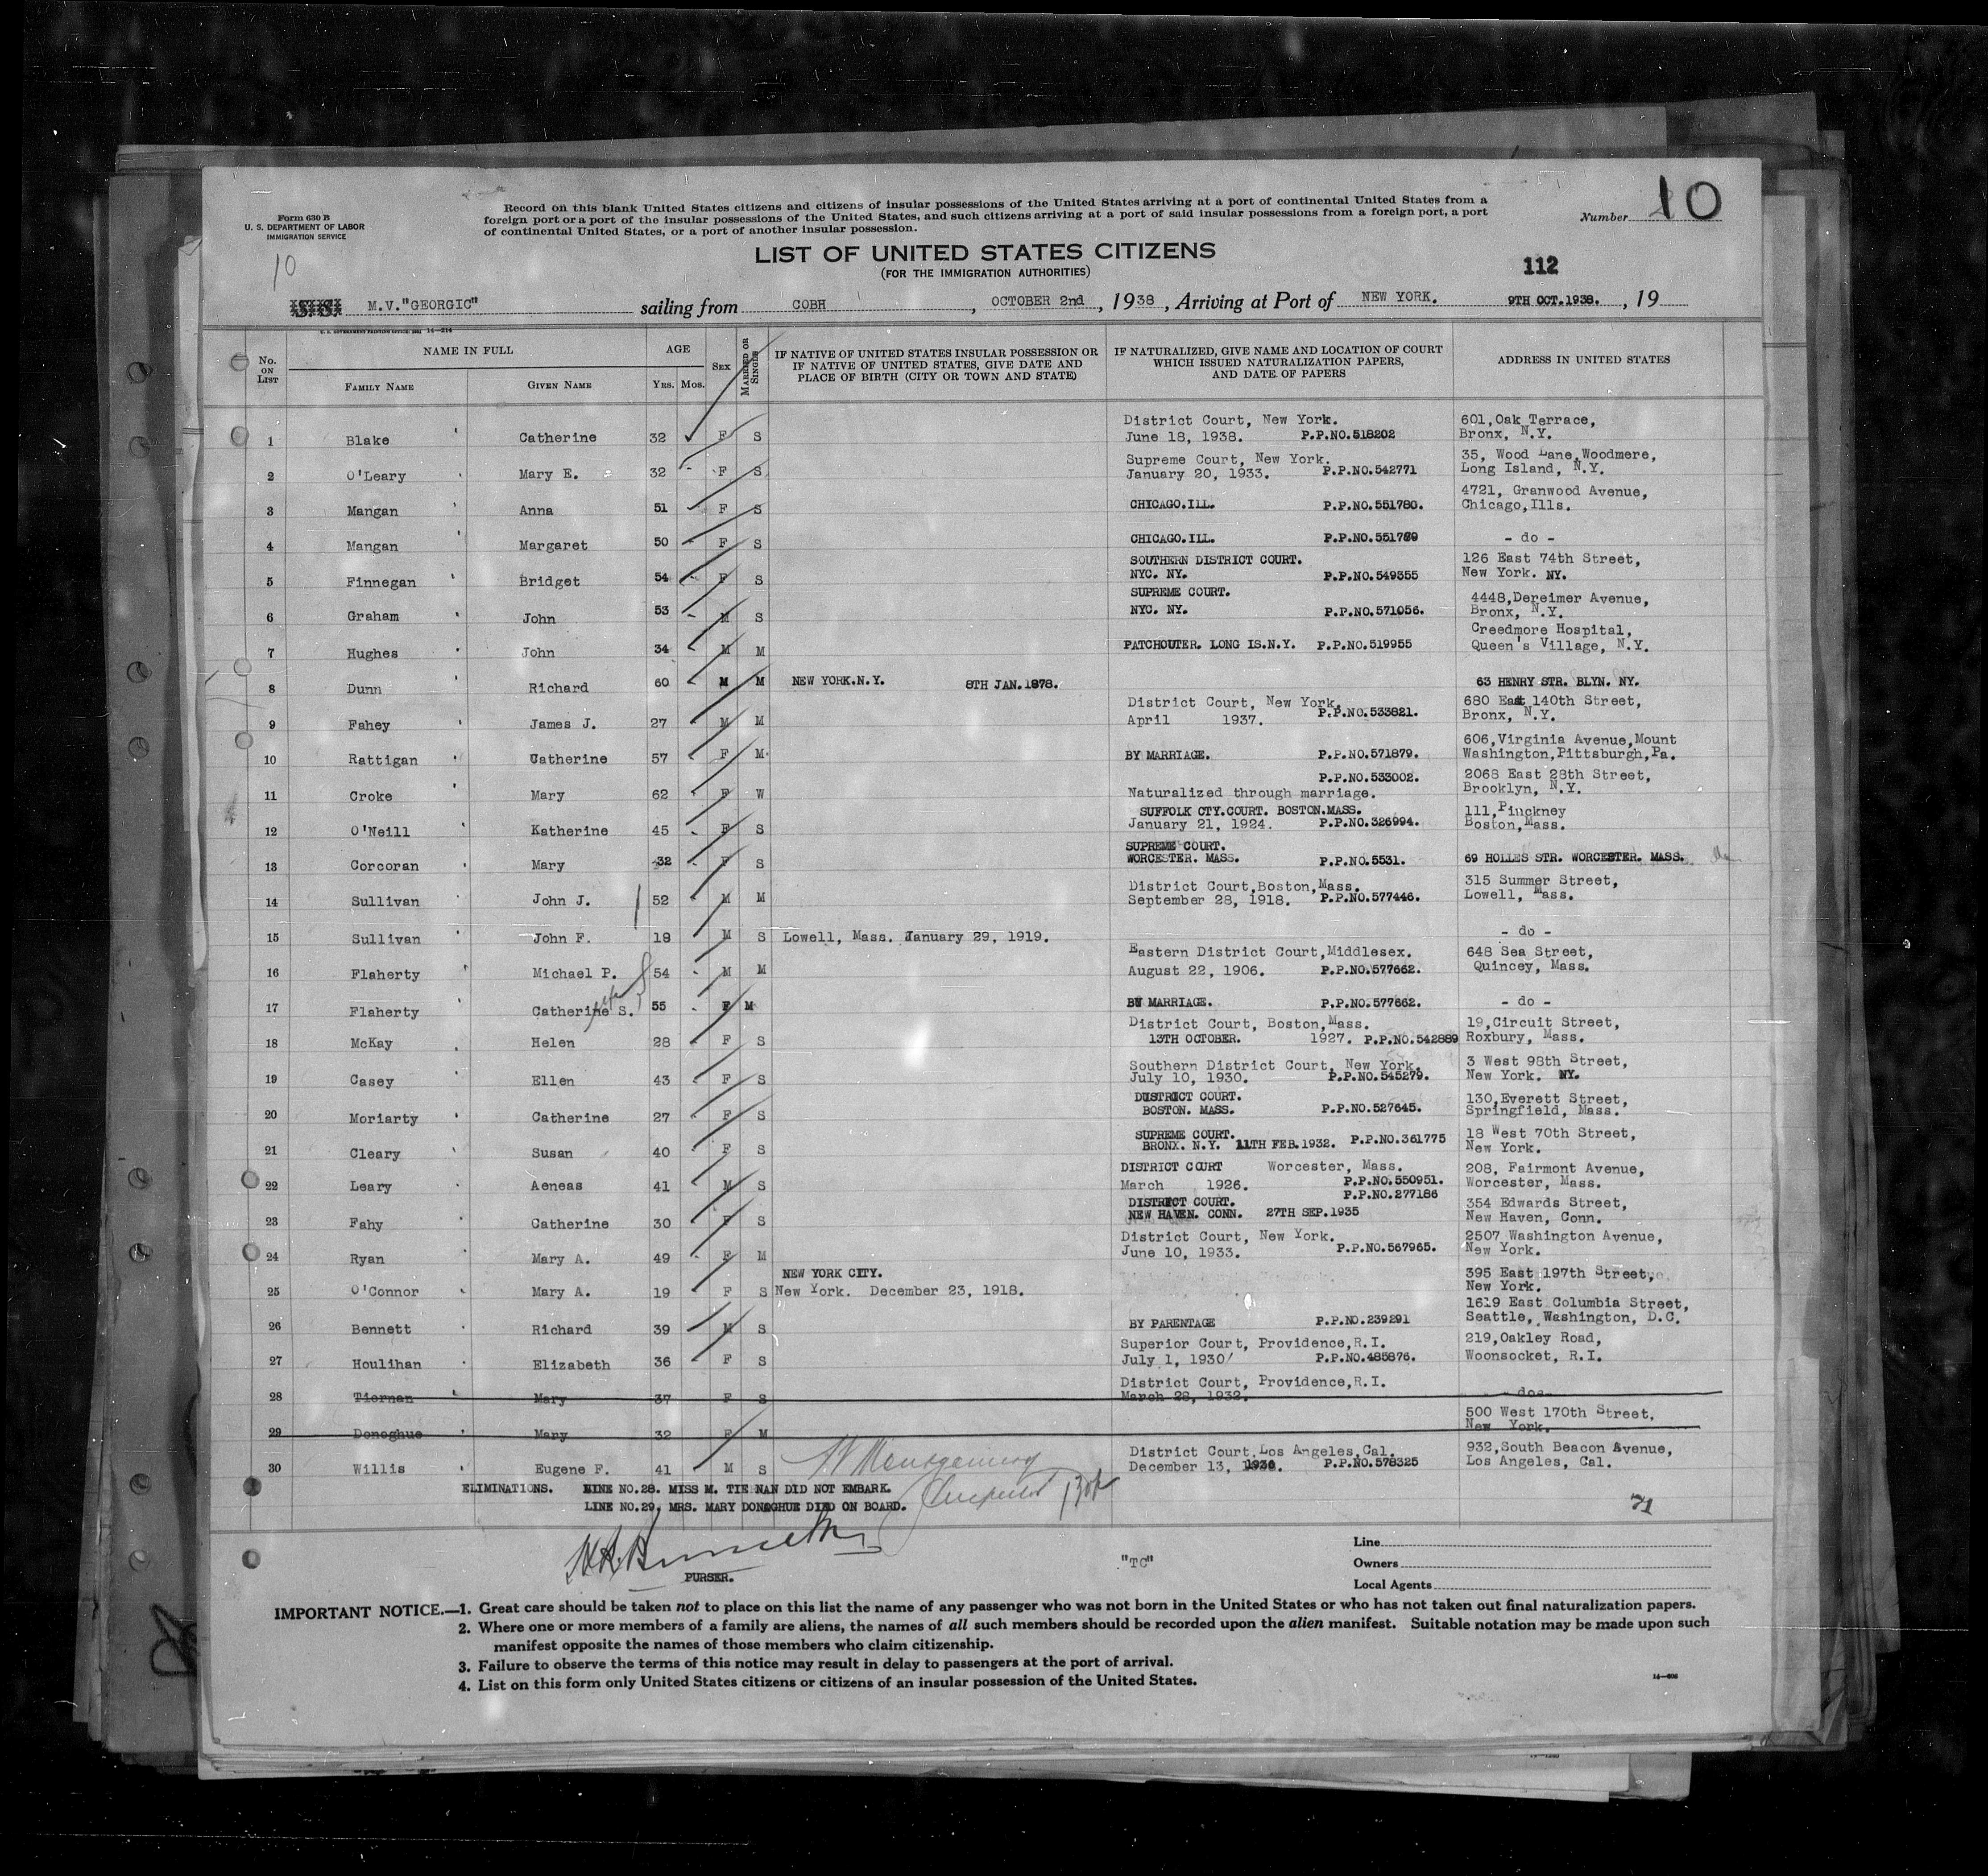 Form 630 B
U. S. DEPARTMENT OF LABOR
IMMIGRATION SERVICE
10
Record on this blank United States citizens and citizens of insular possessions of the United States arriving at a port of continental United States from a
foreign port or a port of the insular possessions of the United States, and such citizens arriving at a port of said insular possessions from a foreign port, a port
of continental United States, or a port of another insular possession.
Number 10
LIST OF UNITED STATES CITIZENS
(FOR THE IMMIGRATION AUTHORITIES)
112
S.S. M.V."GEORGIC" sailing from COBH, OCTOBER 2nd, 1938, Arriving at Port of NEW YORK. 9TH OCT.1938., 19
U. S. GOVERNMENT PRINTING OFFICE: 1931 14—214
No. ON LIST
NAME IN FULL
FAMILY NAME GIVEN NAME
AGE
YRS. MOS.
SEX
MARRIED OR SINGLE
IF NATIVE OF UNITED STATES INSULAR POSSESSION OR
IF NATIVE OF UNITED STATES, GIVE DATE AND
PLACE OF BIRTH (CITY OR TOWN AND STATE)
IF NATURALIZED, GIVE NAME AND LOCATION OF COURT
WHICH ISSUED NATURALIZATION PAPERS,
AND DATE OF PAPERS
ADDRESS IN UNITED STATES
District Court, New York. 601,Oak Terrace,
1 Blake Catherine 32 F S June 18, 1938. P.P.NO.518202 Bronx, N.Y.
Supreme Court, New York. 35, Wood Lane,Woodmere,
2 O'Leary Mary E. 32 - F S January 20, 1933. P.P.NO.542771 Long Island, N.Y.
4721, Granwood Avenue,
3 Mangan Anna 51 F S CHICAGO.ILL. P.P.NO.551780. Chicago,Ills.
4 Mangan Margaret 50 - F S CHICAGO.ILL. P.P.NO.551779 - do -
SOUTHERN DISTRICT COURT. 126 East 74th Street,
5 Finnegan Bridget 54 - F S NYC. NY. P.P.NO.549355 New York. NY.
SUPREME COURT. 4448,Dereimer Avenue,
6 Graham John 53 - M S NYC. NY. P.P.NO.571056. Bronx, N.Y.
Creedmore Hospital,
7 Hughes John 34 M M PATCHOUTER. LONG IS.N.Y. P.P.NO.519955 Queen's Village, N.Y.
8 Dunn Richard 60 M M NEW YORK.N.Y. 8TH JAN.1878. 63 HENRY STR. BLYN. NY.
District Court, New York. 680 East 140th Street,
9 Fahey James J. 27 M M April 1937. P.P.NO.533821. Bronx, N.Y.
606,Virginia Avenue,Mount
10 Rattigan Catherine 57 F M BY MARRIAGE. P.P.NO.571879. Washington,Pittsburgh,Pa.
P.P.NO.533002. 2068 East 28th Street,
11 Croke Mary 62 F W Naturalized through marriage. Brooklyn, N.Y.
SUFFOLK CTY.COURT. BOSTON.MASS. 111,Pinckney
12 O'Neill Katherine 45 F S January 21, 1924. P.P.NO.326994. Boston,Mass.
SUPREME COURT.
13 Corcoran Mary 32 F S WORCESTER. MASS. P.P.NO.5531. 69 HOLLES STR. WORCESTER. MASS.
District Court,Boston,Mass. 315 Summer Street,
14 Sullivan John J. 52 M M September 28, 1918. P.P.NO.577446. Lowell, Mass.
15 Sullivan John F. 19 M S Lowell, Mass. January 29, 1919. - do -
Eastern District Court,Middlesex. 648 Sea Street,
16 Flaherty Michael P. 54 M M August 22, 1906. P.P.NO.577662. Quincey, Mass.
wife
17 Flaherty Catherine S. 55 F M BY MARRIAGE. P.P.NO.577662. - do -
District Court, Boston,Mass. 19,Circuit Street,
18 McKay Helen 28 F S 13TH OCTOBER. 1927. P.P.NO.542889 Roxbury, Mass.
Southern District Court, New York. 3 West 98th Street,
19 Casey Ellen 43 F S July 10, 1930. P.P.NO.545279. New York. NY.
DISTRICT COURT. 130,Everett Street,
20 Moriarty Catherine 27 F S BOSTON. MASS. P.P.NO.527645. Springfield, Mass.
SUPREME COURT. 18 West 70th Street,
21 Cleary Susan 40 F S BRONX. N.Y. 11TH FEB.1932. P.P.NO.361775 New York.
DISTRICT COURT Worcester, Mass. 208, Fairmont Avenue,
22 Leary Aeneas 41 M S March 1926. P.P.NO.550951. Worcester, Mass.
DISTRICT COURT. P.P.NO.277186 354 Edwards Street,
23 Fahy Catherine 30 F S NEW HAVEN. CONN. 27TH SEP.1935 New Haven, Conn.
District Court, New York. 2507 Washington Avenue,
24 Ryan Mary A. 49 F M June 10, 1933. P.P.NO.567965. New York.
NEW YORK CITY. 395 East 197th Street,
25 O'Connor Mary A. 19 F S New York. December 23, 1918. New York.
1619 East Columbia Street,
26 Bennett Richard 39 M S BY PARENTAGE P.P.NO.239291 Seattle, Washington, D.C.
Superior Court, Providence,R.I. 219,Oakley Road,
27 Houlihan Elizabeth 36 F S July 1, 1930 P.P.NO.485876. Woonsocket, R.I.
District Court, Providence,R.I.
28 Tiernan Mary 37 F S March 28, 1932. - do -
500 West 170th Street,
29 Donoghue Mary 32 F M New York.
District Court,Los Angeles,Cal. 932,South Beacon Avenue,
30 Willis Eugene F. 41 M S December 13, 1930. P.P.NO.578325 Los Angeles, Cal.
ELIMINATIONS. LINE NO.28. MISS M. TIERNAN DID NOT EMBARK.
LINE NO.29, MRS. MARY DONOGHUE DIED ON BOARD.
71
PURSER.
"TC"
Line
Owners
Local Agents
IMPORTANT NOTICE.—1. Great care should be taken not to place on this list the name of any passenger who was not born in the United States or who has not taken out final naturalization papers.
2. Where one or more members of a family are aliens, the names of all such members should be recorded upon the alien manifest. Suitable notation may be made upon such
manifest opposite the names of those members who claim citizenship.
3. Failure to observe the terms of this notice may result in delay to passengers at the port of arrival.
4. List on this form only United States citizens or citizens of an insular possession of the United States.